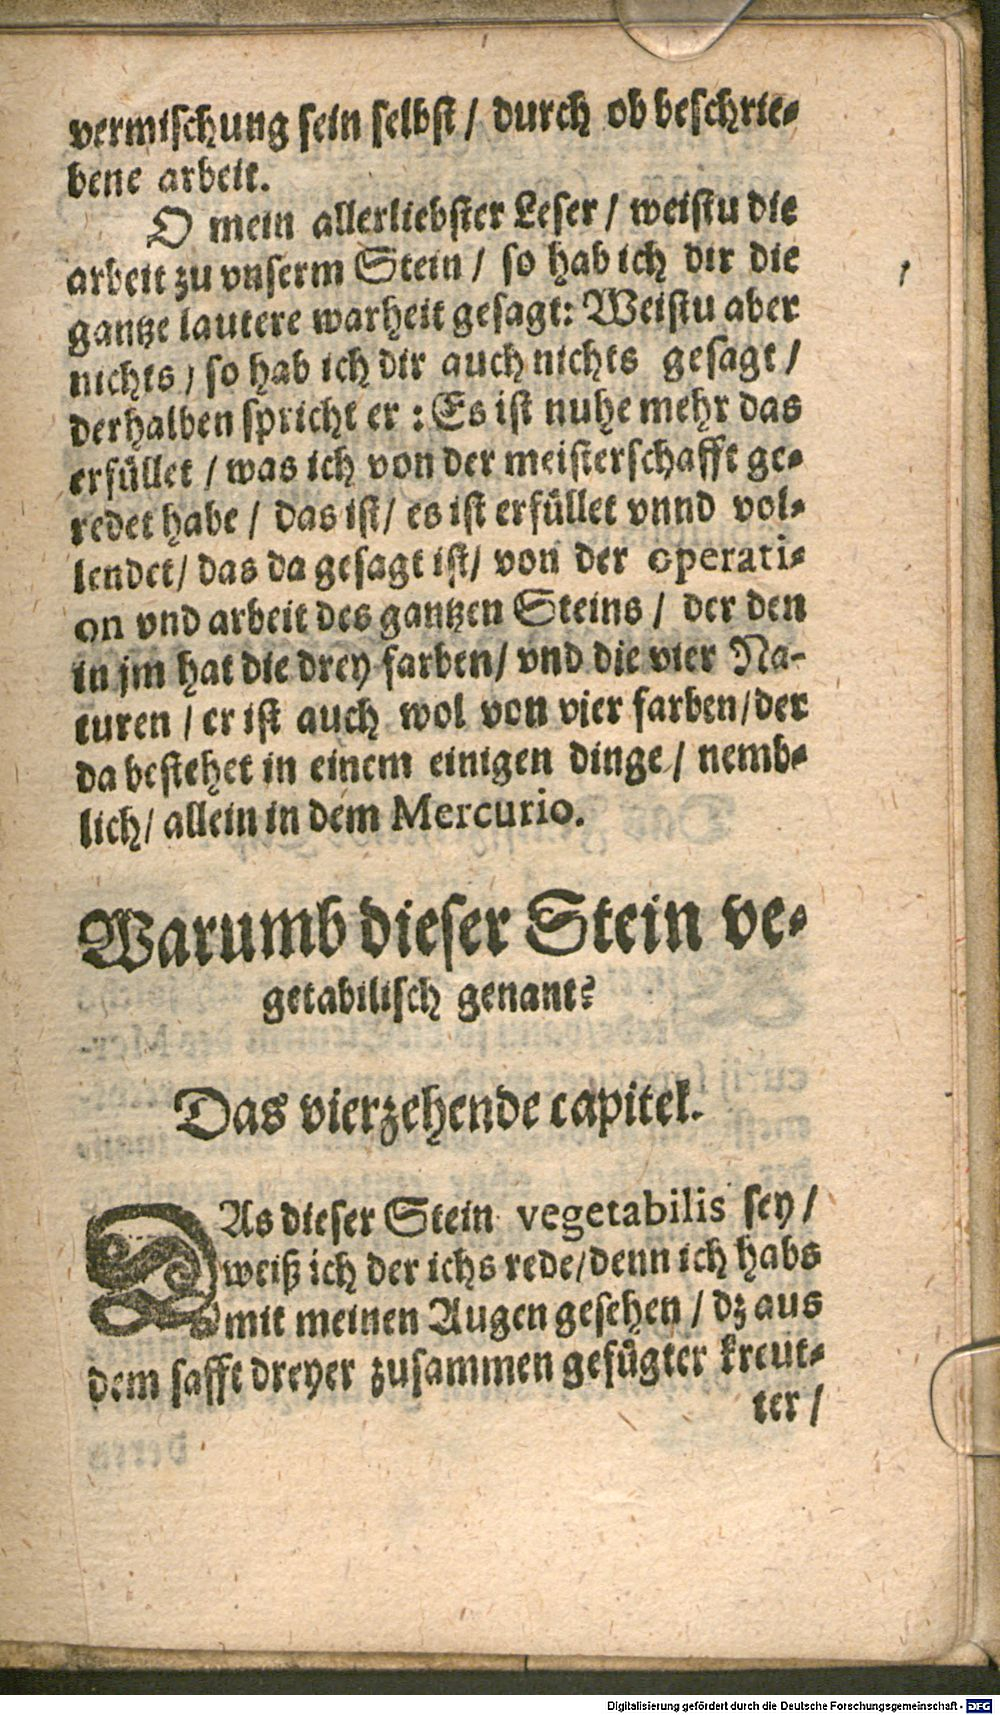 vermischung sein selbst / durch ob beschrie-
bene arbeit.
O mein allerliebster Leser / weistu die
arbeit zu vnserm Stein / so hab ich dir die
gantze lautere warheit gesagt: Weistu aber
nichts / so hab ich dir auch nichts gesagt /
derhalben spricht er : Es ist nuhe mehr das
erfüllet / was ich von der meisterschafft ge-
redet habe / das ist / es ist erfüllet vnnd vol-
lendet / das da gesagt ist / von der operati-
on vnd arbeit des gantzen Steins / der den
in jm hat die drey farben / vnd die vier Na-
turen / er ist auch wol von vier farben / der
da bestehet in einem einigen dinge / nemb-
lich / allein in dem Mercurio.
Warumb dieser Stein ve-
getabilisch genant?
Das vierzehende capitel.
DAs dieser Stein vegetabilis sey /
weiß ich der ichs rede / denn ich habs
mit meinen Augen gesehen / dz aus
dem safft dreyer zusammen gefügter kreut-
ter /
Digitalisierung gefördert durch die Deutsche Forschungsgemeinschaft - DFG